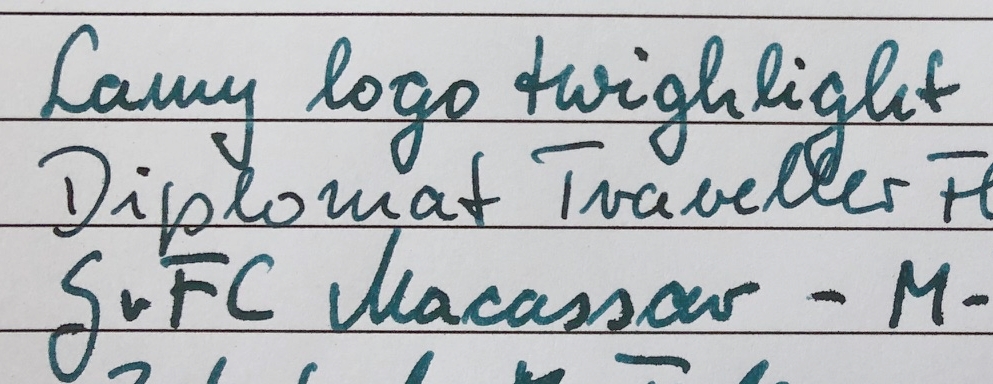 Lamy logo twighlight
Diplomat Traveller
GvFC Macassar - M-